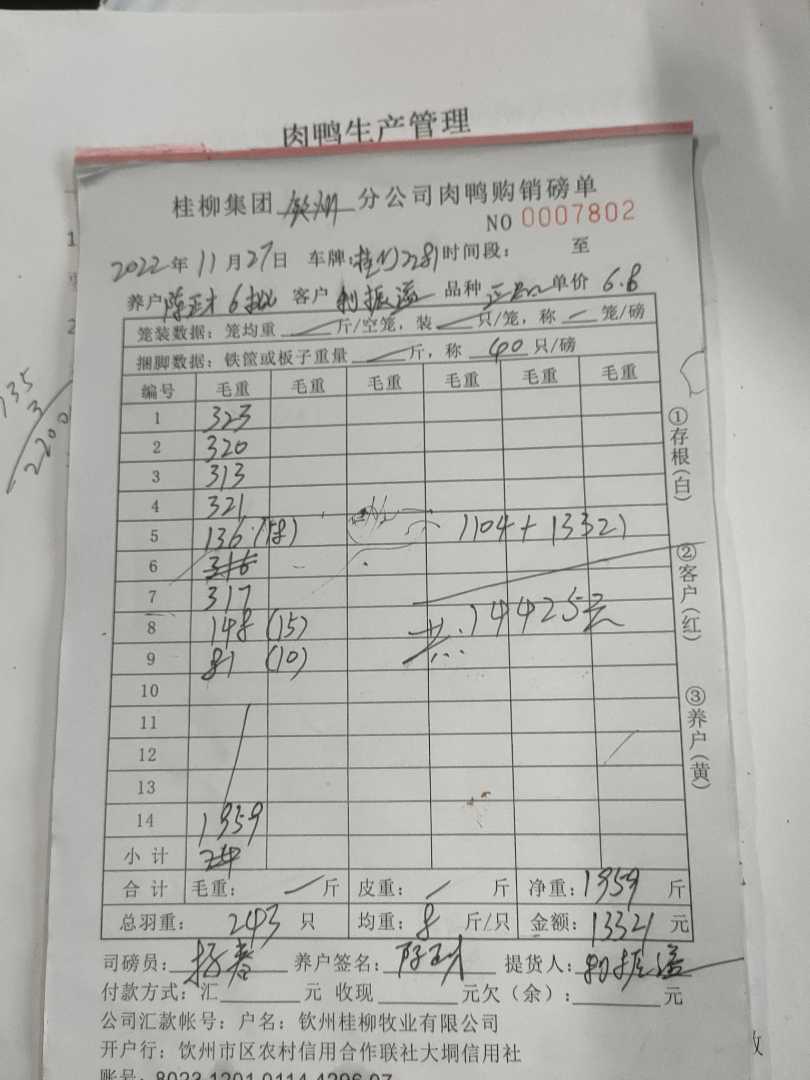 肉鸭生产管理
桂柳集团 钦州 分公司肉鸭购销磅单
NO 0007802
2022年 11月27日 车牌: 2281 时间段: 至
养户 6批 客户 品种 单价 6.8
笼装数据: 笼均重 斤/空笼, 装 只/笼, 称 笼/磅
捆脚数据: 铁筐或板子重量 斤, 称 40 只/磅
编号 毛重 毛重 毛重 毛重 毛重 毛重
1 323
2 320
3 313
4 321
5 136 (18) 1104+13321
6 316
7 317
8 148 (15) 共: 14425元
9 81 (10)
10
11
12
13
14 1959
小计
合计 毛重: 斤 皮重: 斤 净重: 1959 斤
总羽重: 243 只 均重: 8 斤/只 金额: 13321 元
司磅员: 养户签名: 提货人:
付款方式: 汇 元 收现 元欠(余): 元
公司汇款帐号: 户名: 钦州桂柳牧业有限公司
开户行: 钦州市区农村信用合作联社大垌信用社
账号: 8023 1201 0114 4296 07
①存根(白)
②客户(红)
③养户(黄)
135
3
2200